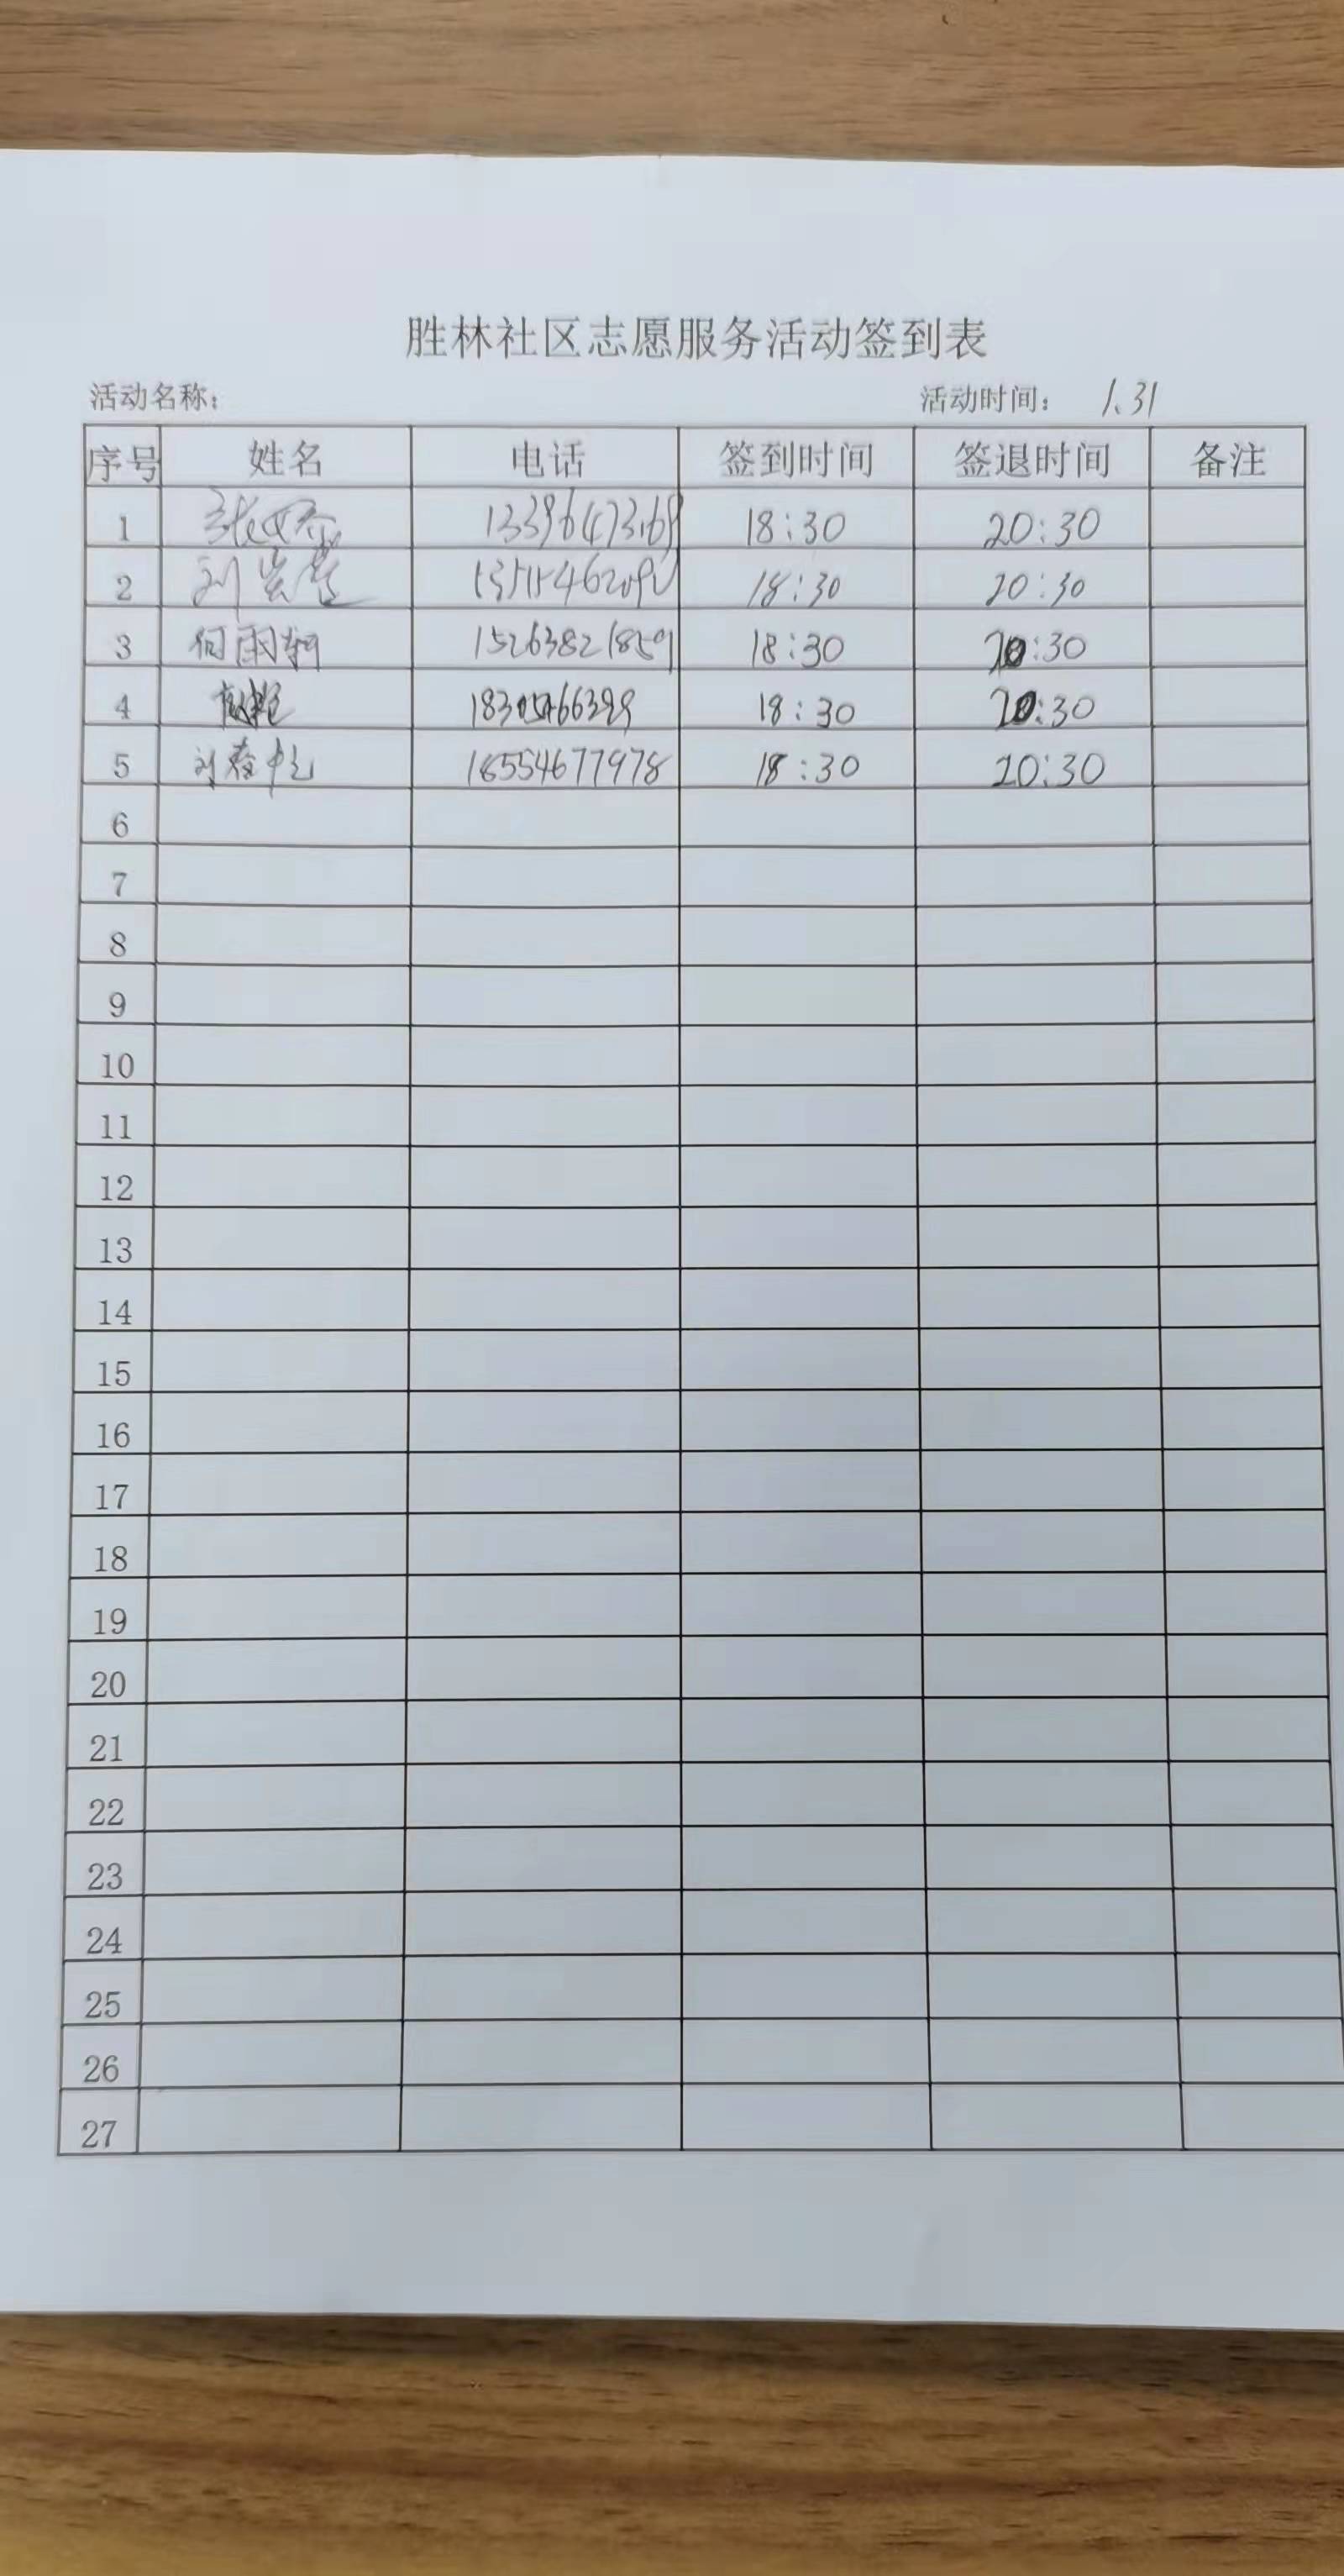 胜林社区志愿服务活动签到表
活动名称： 活动时间： 1.31
序号 姓名 电话 签到时间 签退时间 备注
1 18:30 20:30
2 刘 18:30 20:30
3 何雨轩 15263821859 18:30 20:30
4 18:30 20:30
5 刘春 16554677978 18:30 20:30
6
7
8
9
10
11
12
13
14
15
16
17
18
19
20
21
22
23
24
25
26
27